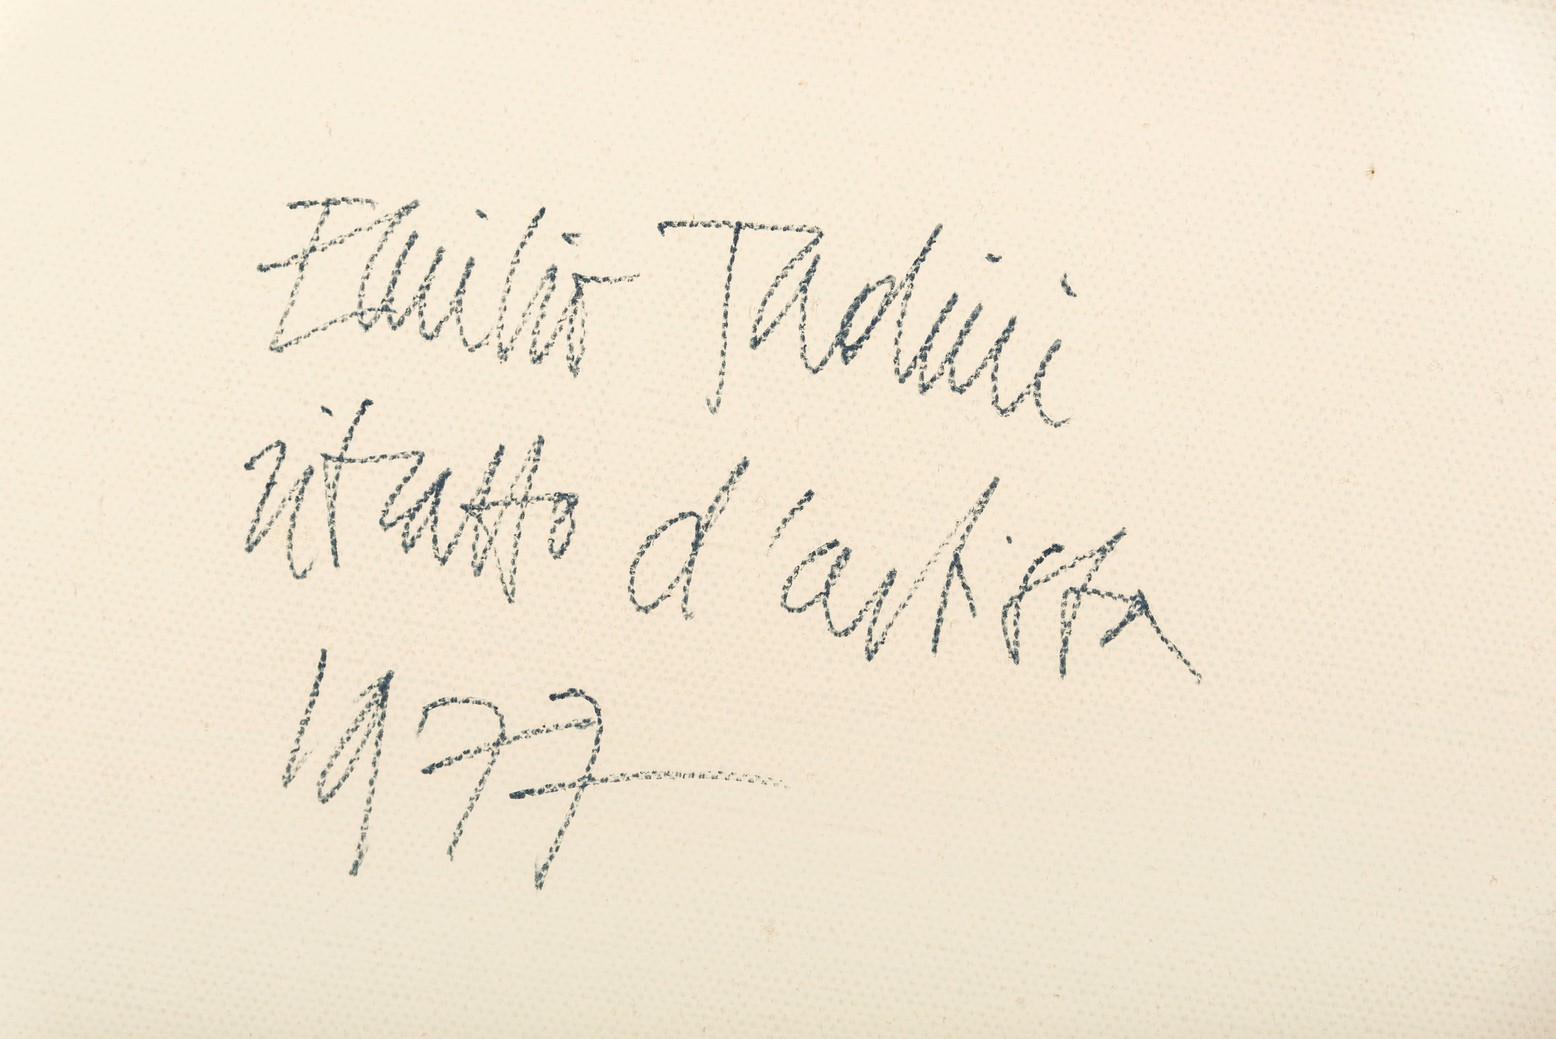 Emilio Tadini
ritratto d'artista
1977